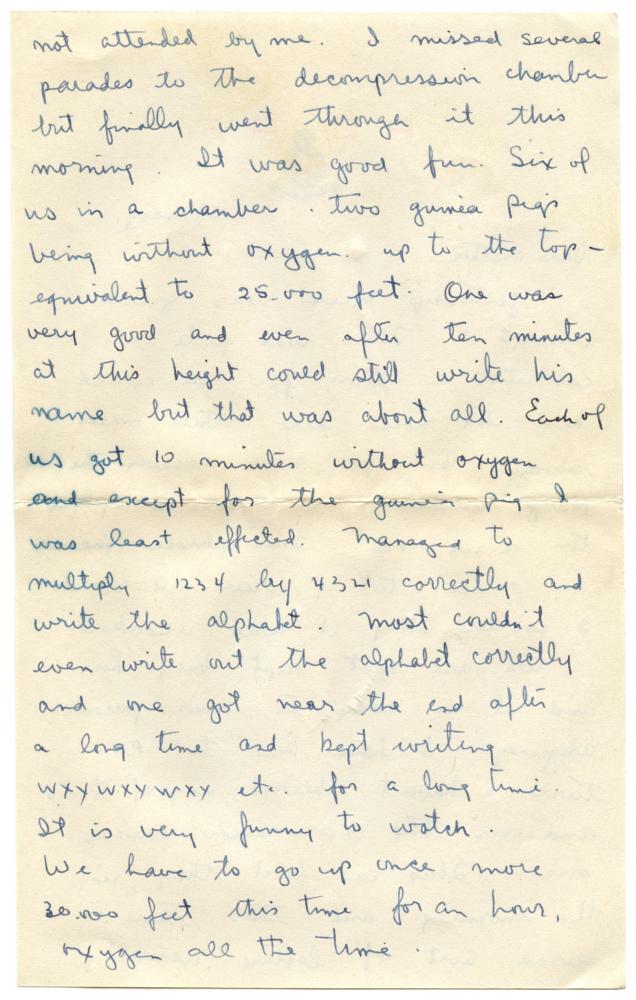 not attended by me. I missed several
parades to the decompression chamber
but finally went through it this
morning. It was good fun. Six of
us in a chamber. two guinea pigs
being without oxygen. up to the top -
equivalent to 25.000 feet. One was
very good and even after ten minutes
at this height could still write his
name but that was about all. Each of
us got 10 minutes without oxygen
and except for the guinea pig I
was least effected. Managed to
multiply 1234 by 4321 correctly and
write the alphabet. Most couldn't
even write out the alphabet correctly
and one got near the end after
a long time and kept writing
wxywxywxy etc for a long time.
It is very funny to watch
We have to go up once more
30.000 feet this time for an hour,
oxygen all the time.